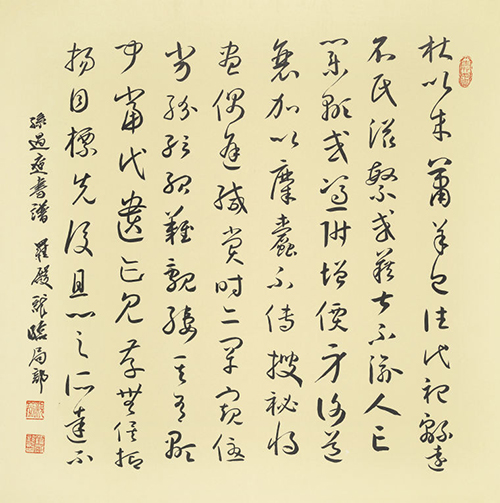 杜以來蕭羊已往代祀綿遠
名氏滋繁或藉甚不渝人亡
業顯或憑附增價身謝道
衰加以糜蠹不傳搜祕將
盡偶逢緘賞時亦罕窺優
劣紛紜殆難覼縷其有顯
聞當代遺跡見存無俟抑
揚自標先後且心之所達不
孫過庭書譜 羅殿龍臨局部